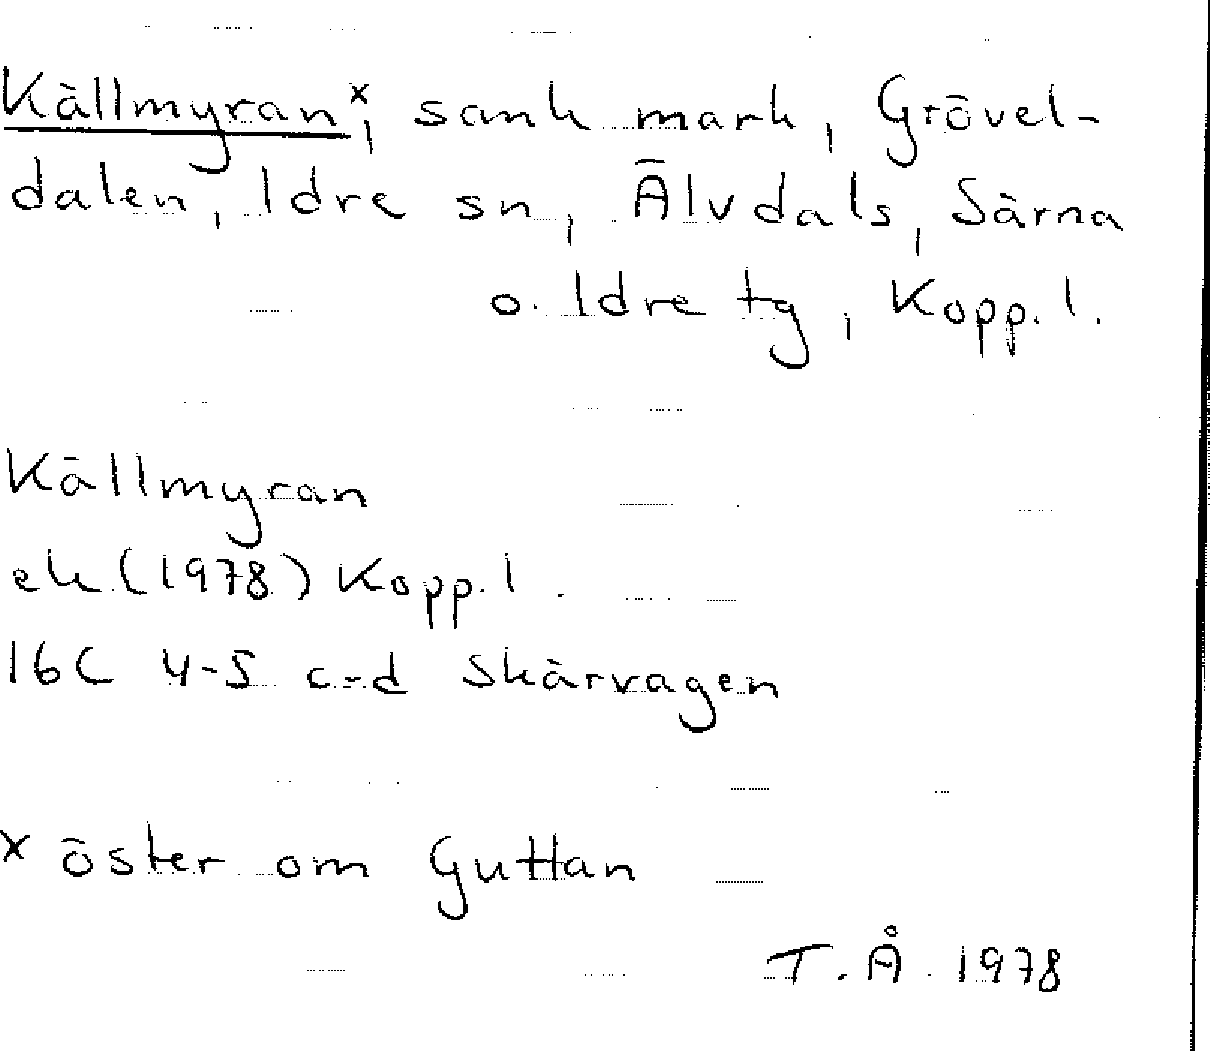 Källmyran x, sank mark, Grövel-
dalen, Idre sn, Älvdals, Särna
o. Idre tg, Kopp. l.
Källmyran
ek (1978) Kopp. l.
16C 4-5 c-d Skärvagen
x öster om Guttan
T. Å. 1978